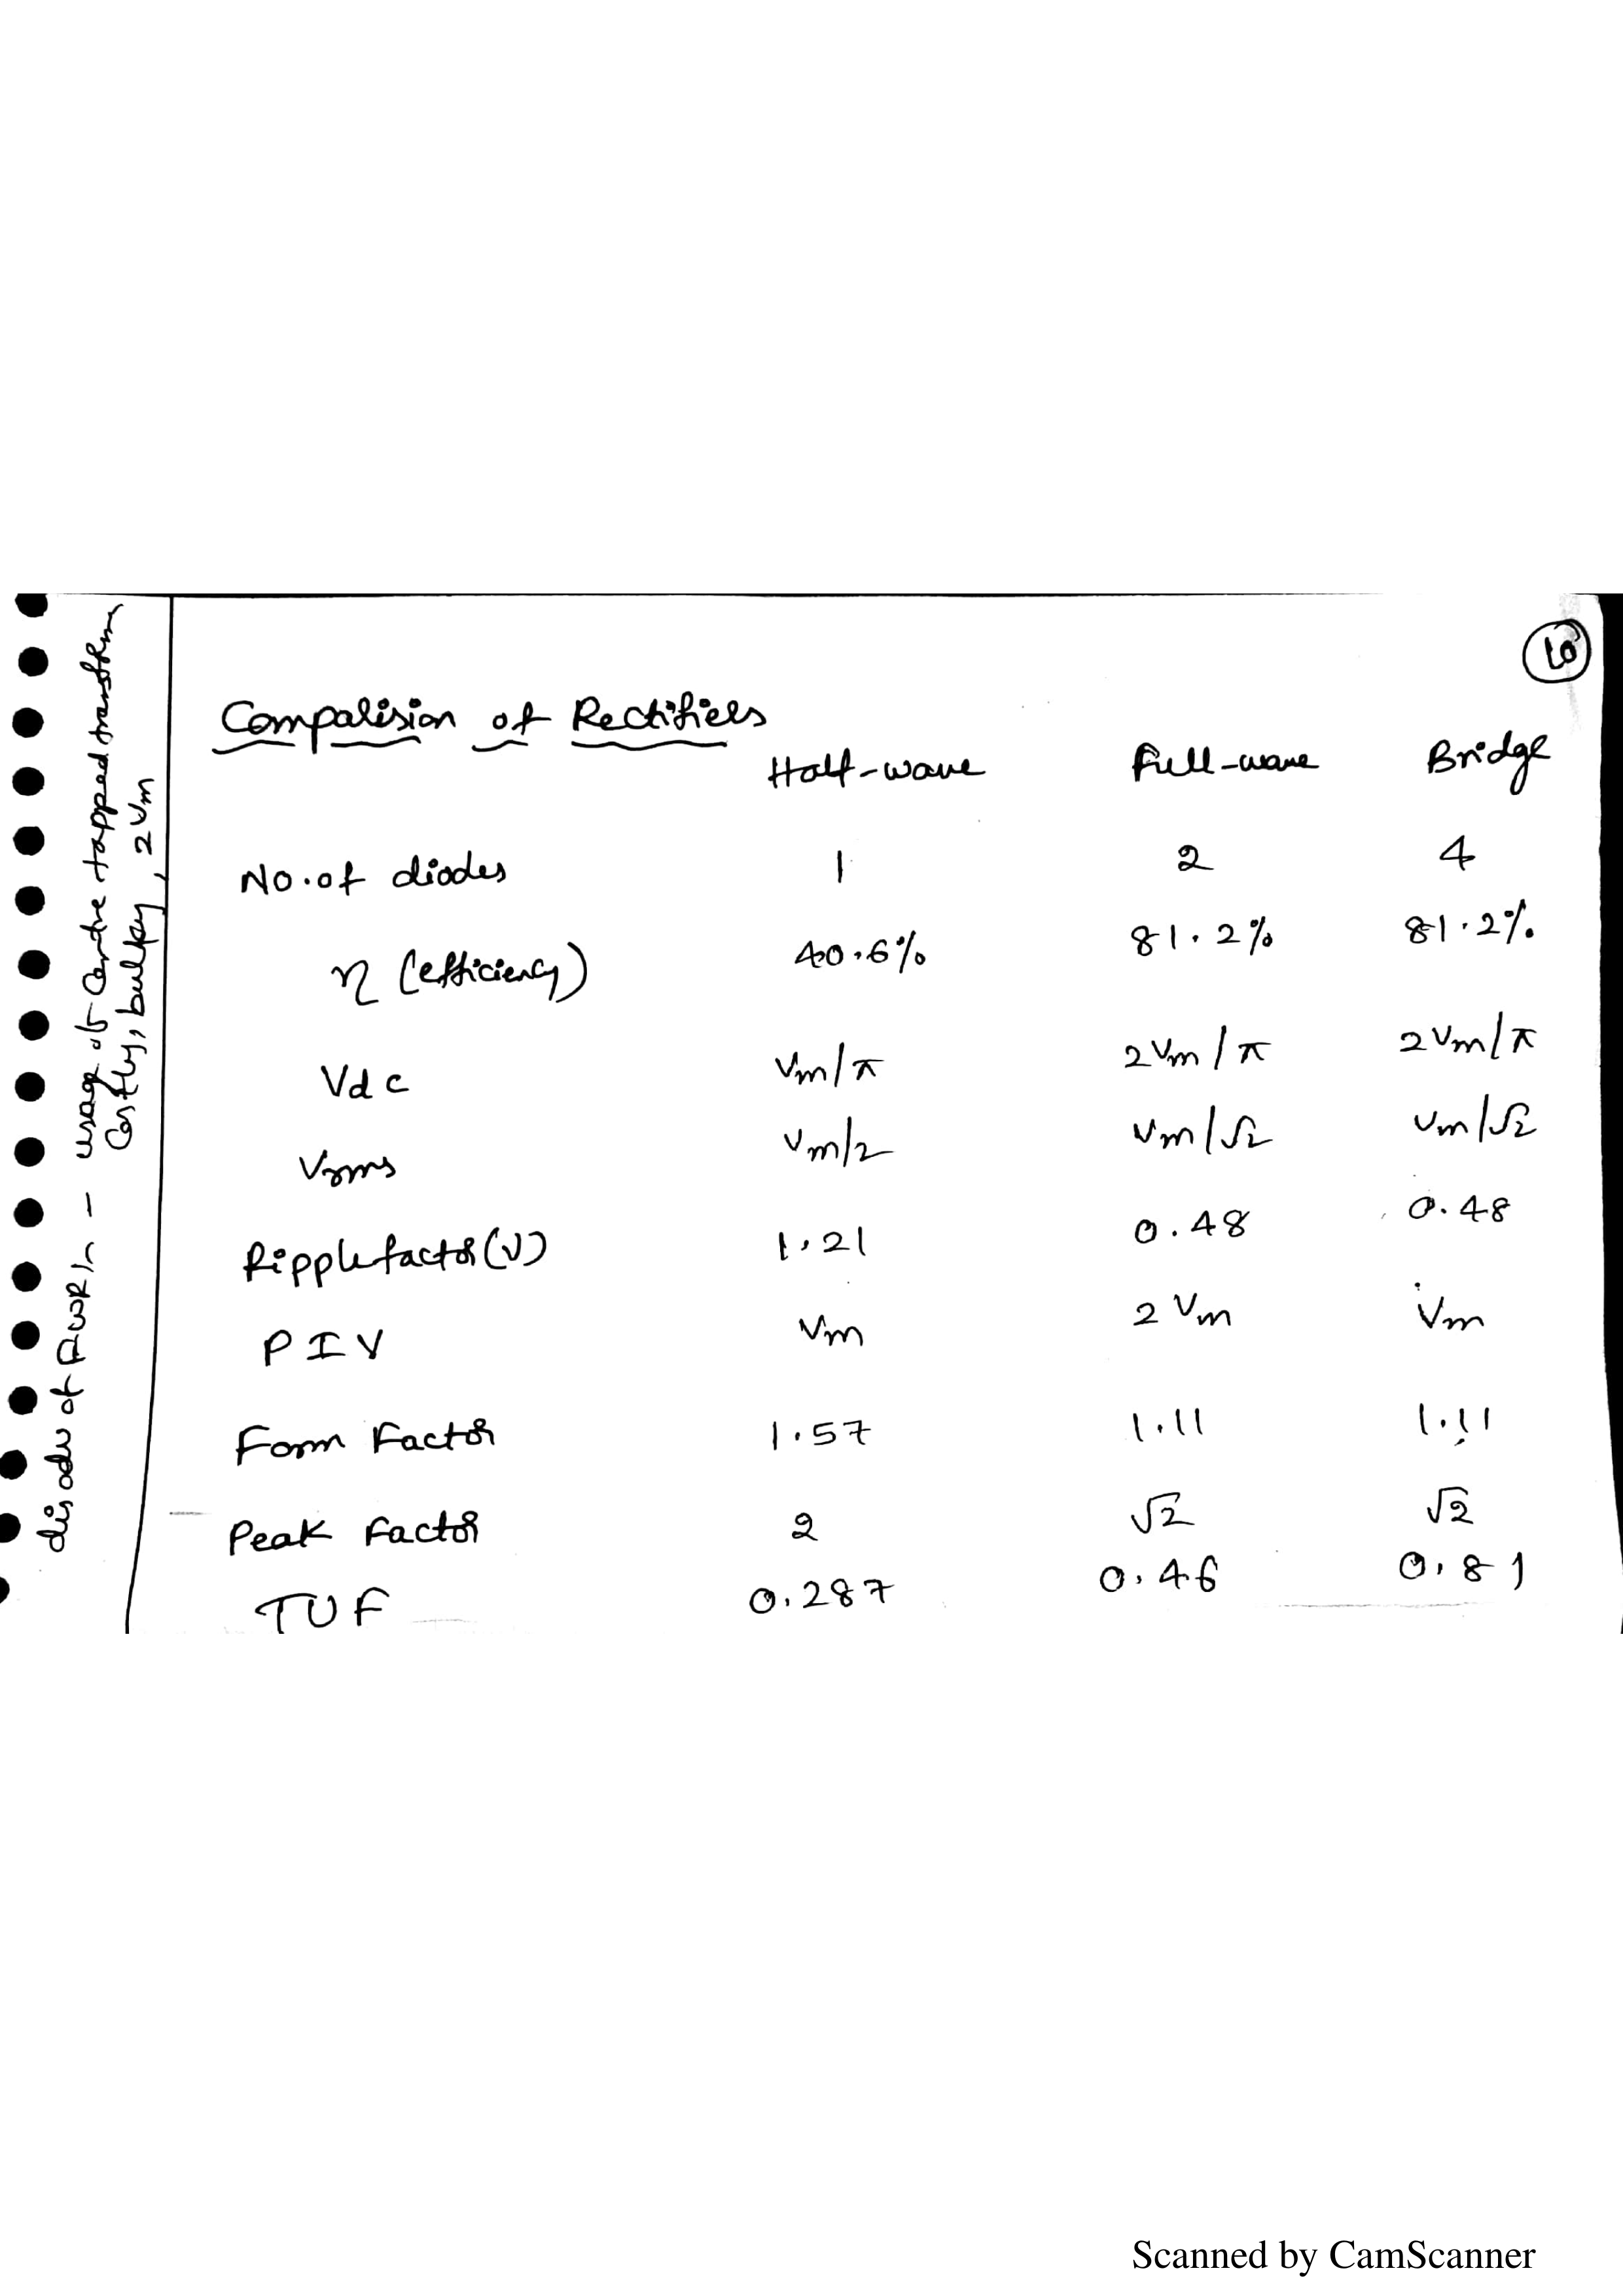 10
Comparision of Rectifiers
Half-wave Full-wave Bridge
No. of diodes 1 2 4
η (efficiency) 40.6% 81.2% 81.2%
Vdc Vm/π 2Vm/π 2Vm/π
Vrms Vm/2 Vm/√2 Vm/√2
Ripple factor(γ) 1.21 0.48 0.48
PIV Vm 2Vm Vm
Form Factor 1.57 1.11 1.11
Peak Factor 2 √2 √2
TUF 0.287 0.46 0.81
disadv of FWR - usage of Centre tapped transfrm
Costly, bulkey, 2Vm
Scanned by CamScanner